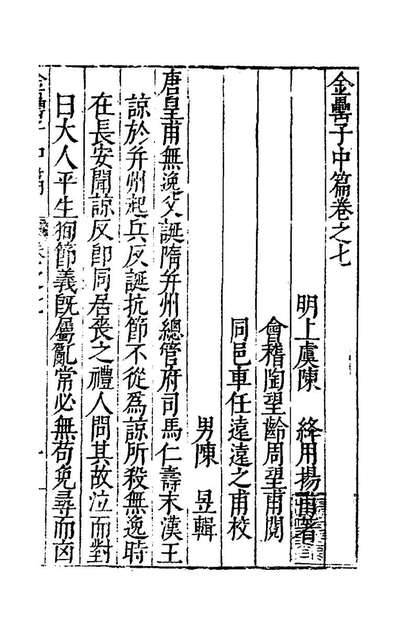 金罍子中篇卷之七
明上虞陳 絳用揚甫著
會稽陶望齡周望甫閱
同邑車任遠遠之甫校
男陳 昱輯
唐皇甫無逸父誕隋并州總管府司馬仁壽末漢王
諒於并州起兵反誕抗節不從為諒所殺無逸時
在長安聞諒反卽同居喪之禮人問其故泣而對
曰大人平生狥節義旣屬亂常必無苟免尋而凶